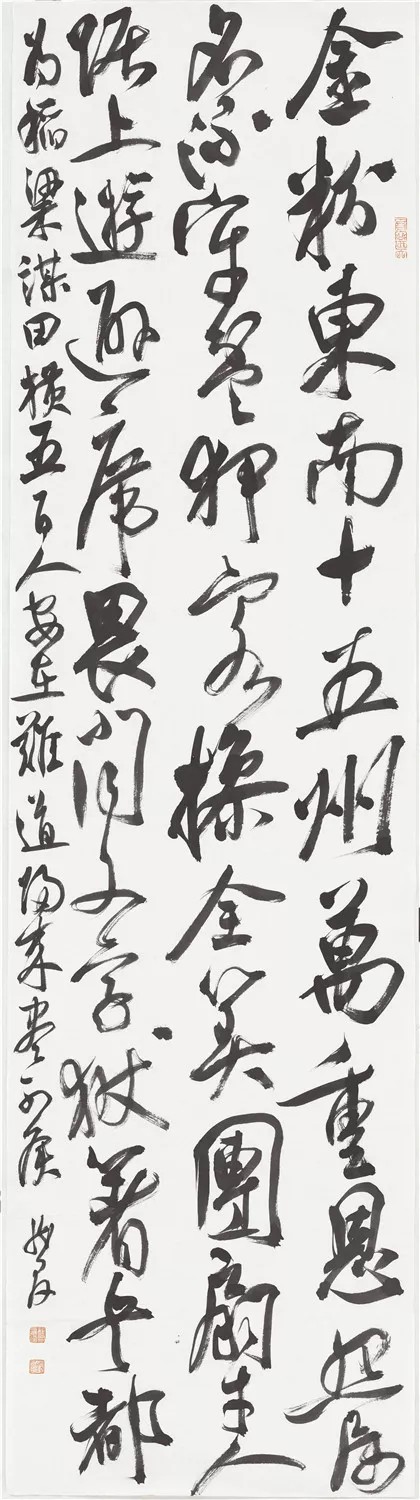 金粉東南十五州萬重恩怨屬
名流牢盆狎客操全算團扇才人
踞上遊避席畏聞文字獄著書都
為稻粱謀田橫五百人安在難道歸來盡列侯